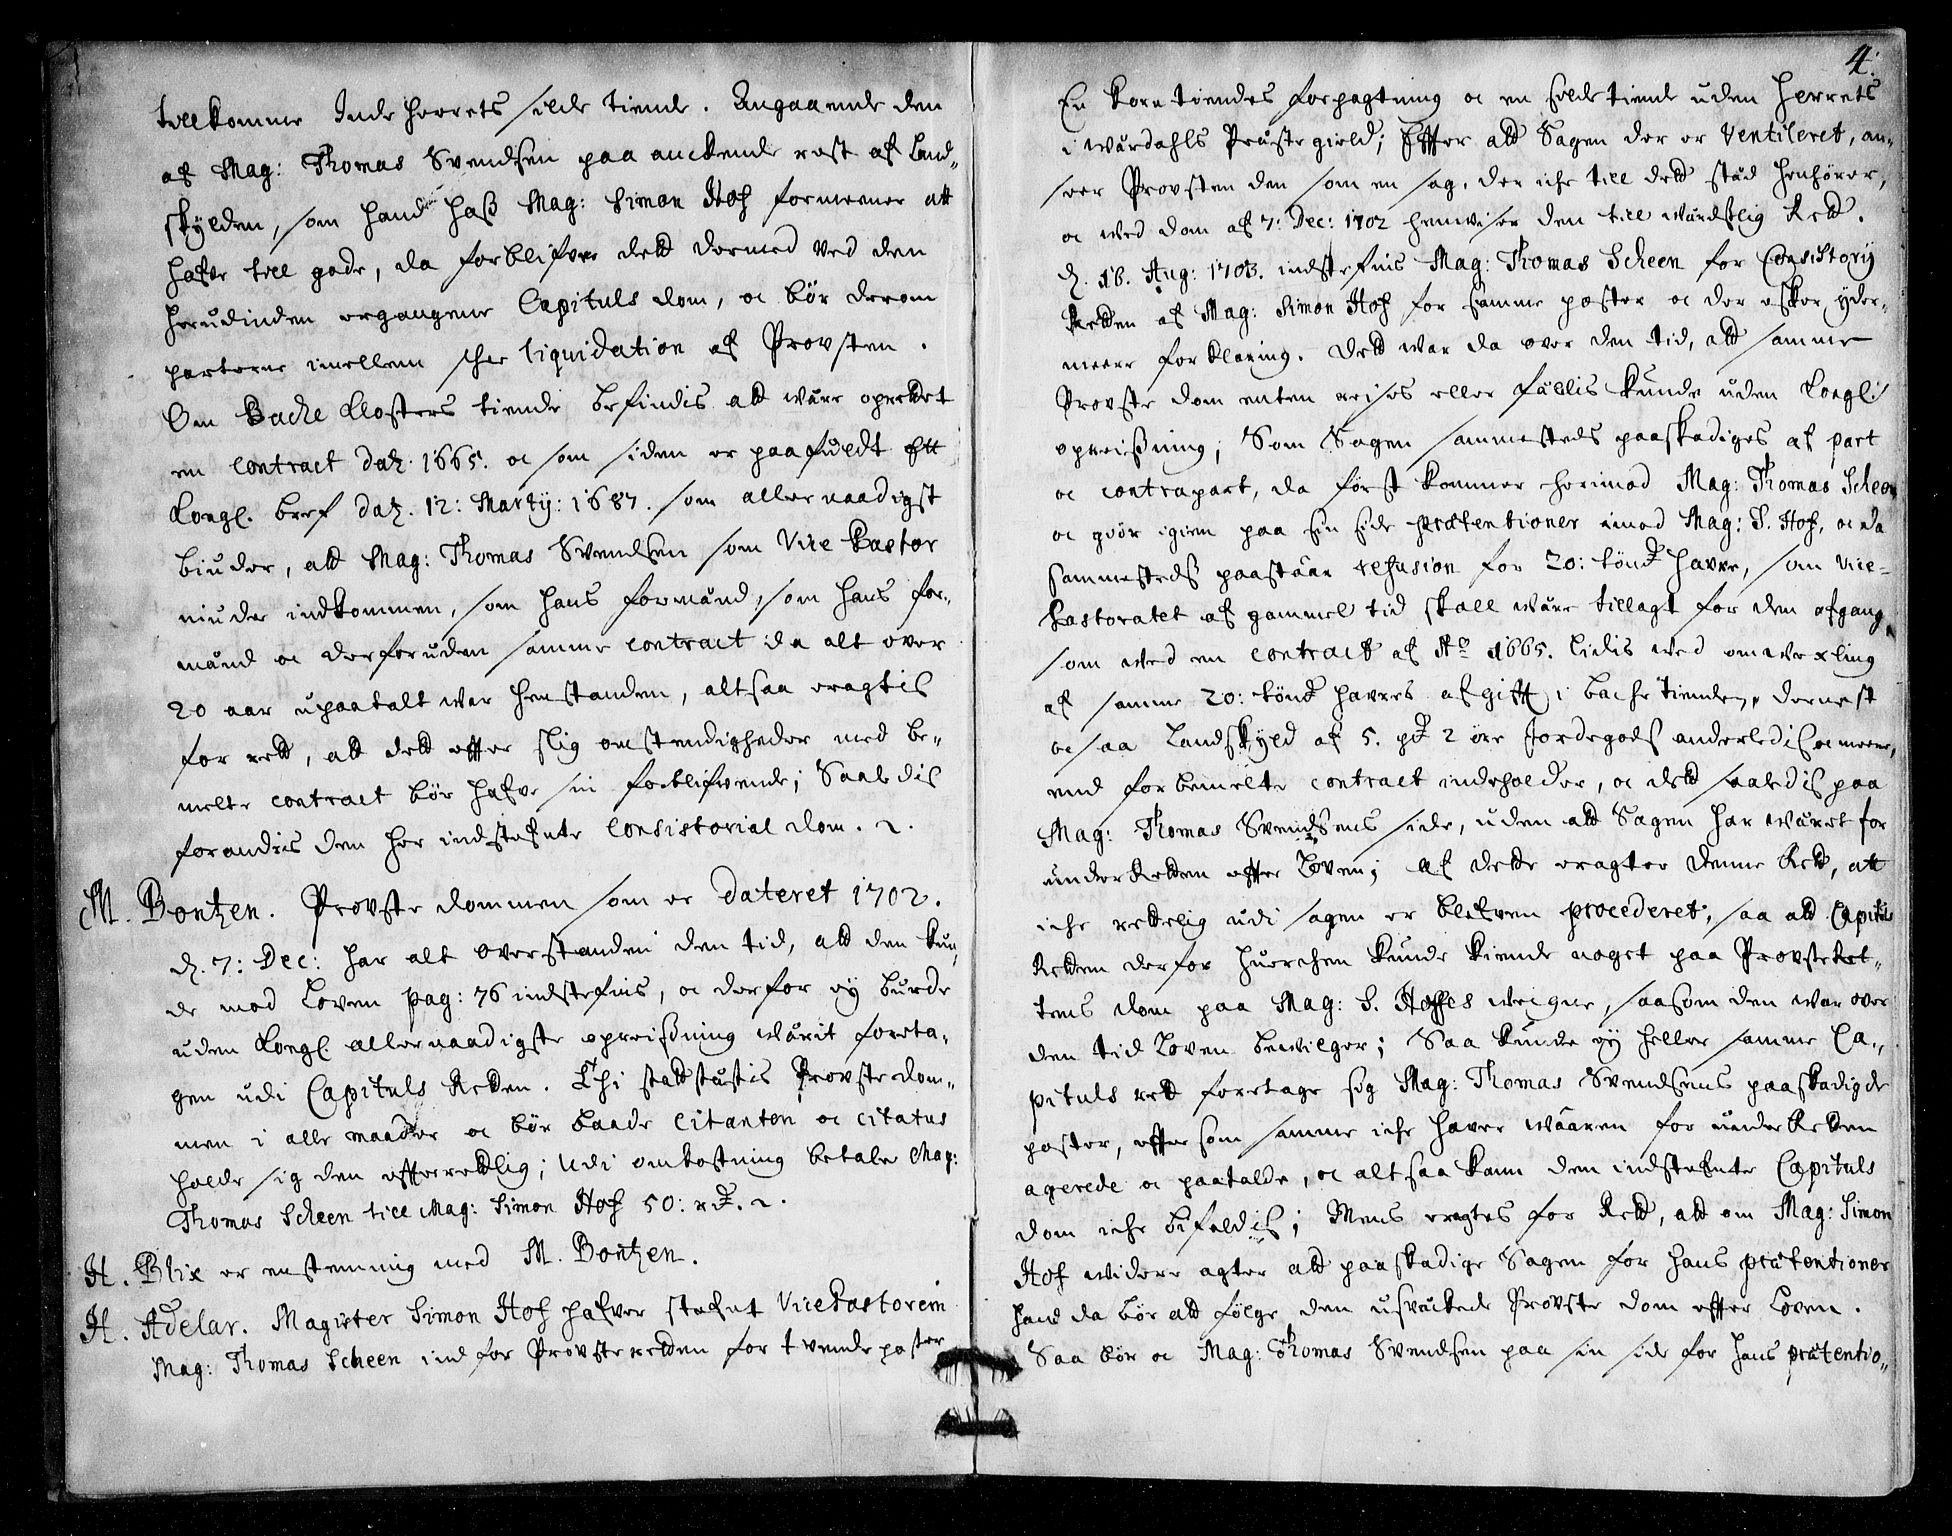 tillkomme Inde Herrets silde tiende. Angaaende den
af Mag: Thomas Svendsen paa anckende rest af Land„
skylden, som hand haß Mag: Simon Hof formeener att
hafve till gode, da forblifver dett dermed ved den
herudinden ergangene Capituls dom, oc bör derom
parterne imellem skee liquidation af Provsten.
Om Bache Closters tiende befindis att være oprettet
en contract dat. 1665. oc som siden er paafuldt Ett
Kongl. bref dat. 12: Marty: 1687. som allernaadigst
biuder, att Mag: Thomas Svendsen som Vice Pastor
niude indkommen, som hans formand, som hans for„
mand oc desforuden samme contract da alt over
20 aar upaatalt war henstanden, altsaa eragtis
for rett, att dett effter slig omstendigheder med be„
melte contract bör hafve sin forblifvende; Saaledis
forandris den her indstefnte Consistorial dom. 
M. Bentzen. Provste dommen som er dateret 1702.
d. 7: Dec: har alt overstanden den tid, att den kun„
de mod Loven pag: 76 indstefnis, oc derfor ey burde
uden Kongl allernaadigste opreißning wærit foreta„
gen udi Capituls Retten. Thi stadfæstis Provste dom„
men i alle maader oc bör baade Citanten oc citatus
holde sig den effterrettlig; Udi omkostning betale Mag:
Thomas Scheen till Mag: Simon Hof 50: rd.
H. Blix er enstemmig med M. Bentzen.
H. Adelar. Magister Simon Hof hafver stefnt VicePastorem
Mag: Thomas Scheen ind for Provsteretten for tvende poster
4.
En korn tiendes forpagtning oc en silde tiende uden Herrets
i Wærdahls Præste gield; Effter att Sagen der er ventileret, an„
seer Provsten den som en sag, der iche till dett stæd henhörer,
oc wed dom af 7: Dec: 1702 henviser den till Wærdslig Rett.
d. 16. Aug: 1703. indstefnis Mag: Thomas Scheen for Consistory
Retten af Mag: Simon Hof for samme poster oc der æsker yder„
meere forklaring. Dett war da over den tid, att samme
Provste dom enten reises eller fældis kunde uden Kongl:
opreißning; Som Sagen sammesteds paaskadiges af part
oc contrapart, da först kommer herimod Mag: Thomas Scheen
oc giör igien paa sin side prætentioner imod Mag: S. Hof, oc da
sammesteds paastaar refusion for 20: tönd havre, som Vice-
Pastoratet af gammel tid skall være tillagt for den afgang,
som wed en contract af Aº 1665. lidis wed omwexling
af samme 20: tönd havres afgift i Bache tiende, dernest
oc saa Landskyld af 5. pd 2 öre Jordegods anderledis oc meere,
end forbemelte contract indeholder, oc dett saaledis paa
Mag: Thomas Svendsens side, uden att Sagen har wæret for
underRetten effter Loven; Af dette eragter denne Rett, att
iche rettelig udi sagen er blefven procederet, saa att Capituls
Retten derfor huerchen kunde kiende noget paa Provste Ret„
tens dom paa Mag: S. Hoffes wegne, saasom den war over
den tid Loven bewilger; Saa kunde ey heller samme Ca„
pituls rett foretage sig Mag: Thomas Svendsens paaskadigde
poster, efftersom samme iche haver wæren for underRetten
agerede oc paatalde, oc altsaa kann den indstefnte Capituls
dom iche bifaldis; Mens eragtes for Rett, att om Mag: Simon
Hof widere agter att paaskadige Sagen for hans prætentioner
hand da bör att fölge den usvæckede Provste dom effter Loven.
Saa bör oc Mag: Thomas Svendsen paa sin side for hans prætentio„